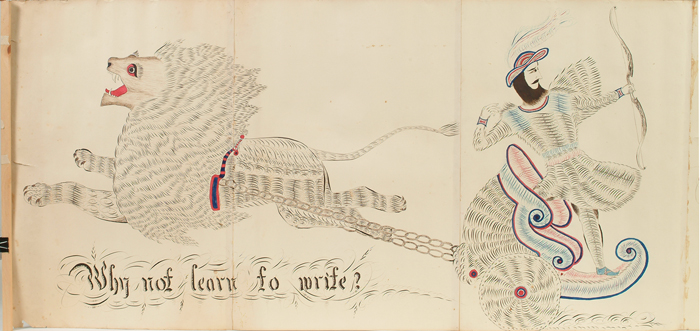 Why not learn to write?